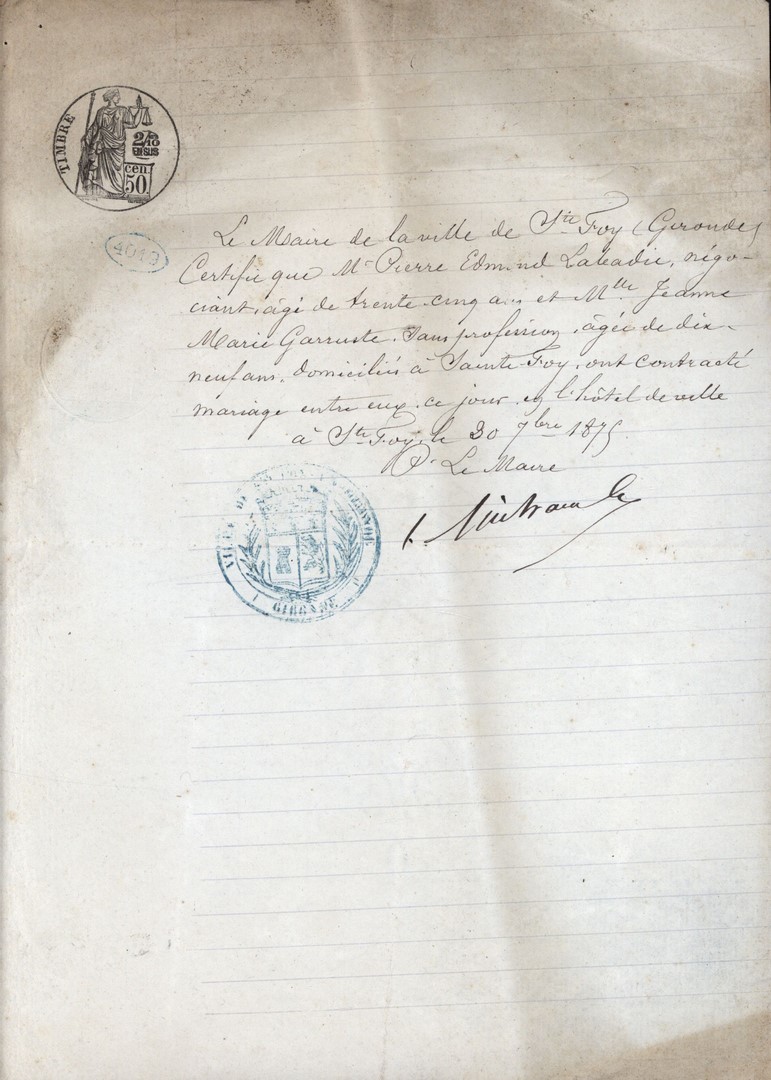 TIMBRE
2/10
EN SUS
cen.
50
4019
Le Maire de la ville de Ste Foy (Gironde)
Certifie que Mr Pierre Edmond Labadie, négo-
ciant, âgé de trente cinq ans et Mlle Jeanne
Marie Garruste, sans profession, âgée de dix-
neuf ans, domiciliés à Sainte-Foy, ont contracté
mariage entre eux, ce jour, en l'hôtel de ville
à Ste Foy, le 30 7bre 1875.
Pr Le Maire
VILLE DE
GIRONDE